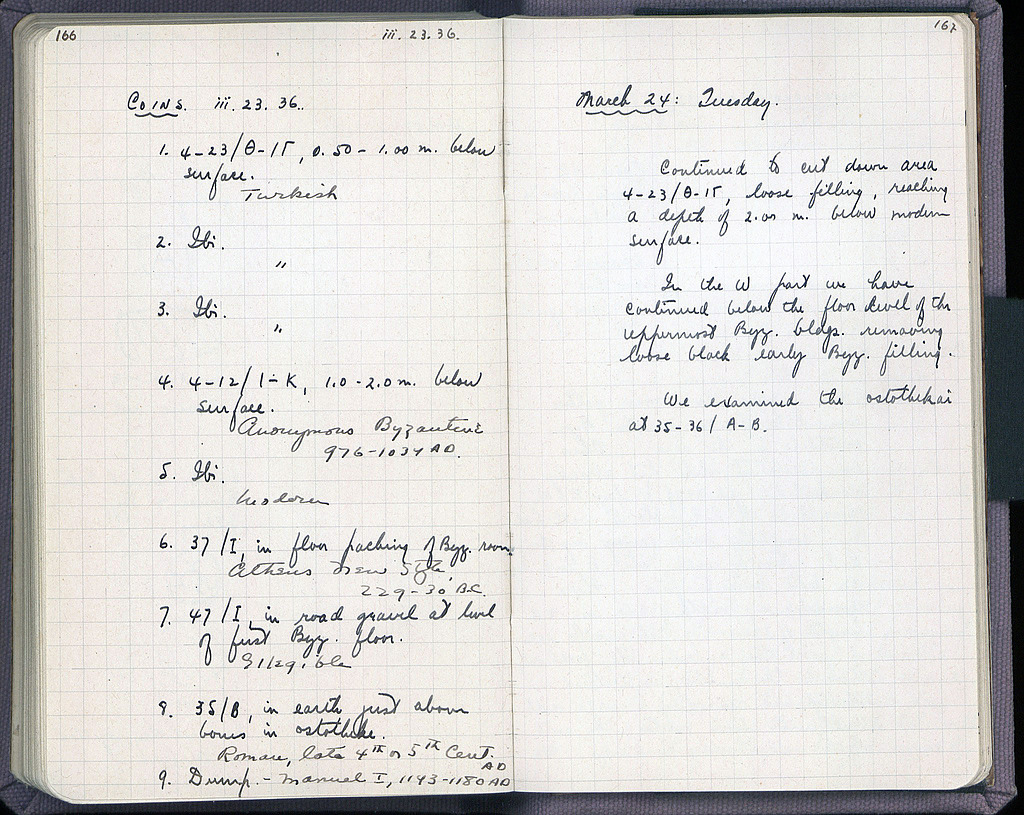 166
iii. 23. 36.
Coins. iii. 23. 36.
1. 4-23/Θ-ΙΓ, 0.50 - 1.00 m. below
surface.
Turkish
2. Ibi.
"
3. Ibi.
"
4. 4-12/Ι-Κ, 1.0-2.0 m. below
surface.
Anonymous Byzantine
976-1034 AD.
5. Ibi.
Modern
6. 37/Γ, in floor packing of Byz. room
Athens New Style,
229-30 B.C.
7. 47/Γ, in road gravel at level
of first Byz. floor.
Illegible
8. 35/B, in earth just above
bones in ostotheke.
Roman, late 4th or 5th Cent.
AD
9. Dump. - Manuel I, 1143-1180 AD
167
March 24: Tuesday.
Continued to cut down area
4-23/Θ-ΙΓ, loose filling, reaching
a depth of 2.00 m. below modern
surface.
In the W part we have
continued below the floor level of the
uppermost Byz. bldgs. removing
loose black early Byz. filling.
We examined the ostothekai
at 35-36/A-B.